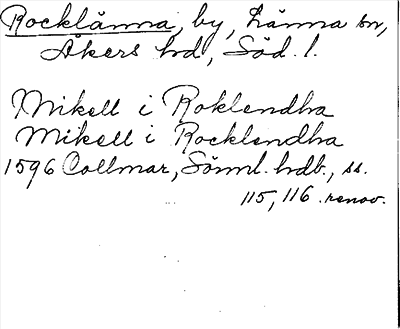 Rocklänna, by, Länna sn,
Åkers hd, Söd. l.
Mikell i Roklendha
Mikell i Rocklendha
1596 Collmar, Sörml. hdb., ss.
115, 116 .renov.